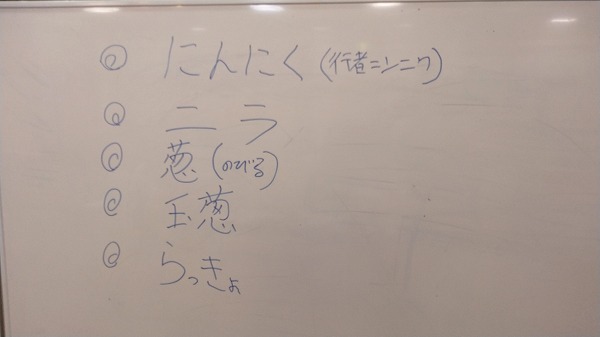 ◎ にんにく (行者ニンニク)
◎ ニラ
◎ 葱 (のびる)
◎ 玉葱
◎ らっきょ